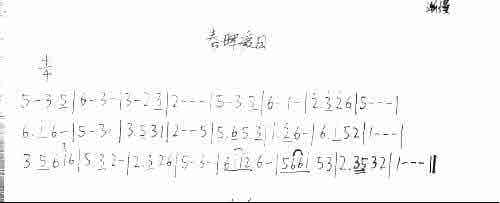 渐慢
春晖
4/4
5-3 5|6-3-|3-2 3|2---|5-3 5|6-1-|2 3 2 6|5---|
6. 1 6-|5-3-|3 5 3 1|2--5|5. 6 5. 3|1. 2 6-|6. 1 5 2|1---|
3 5 6 1 6|5. 3 2-|2. 3 2 6|5-3-|6 1 2 6-|5 6 6 1 5 3|2. 3 5 3 2|1---||